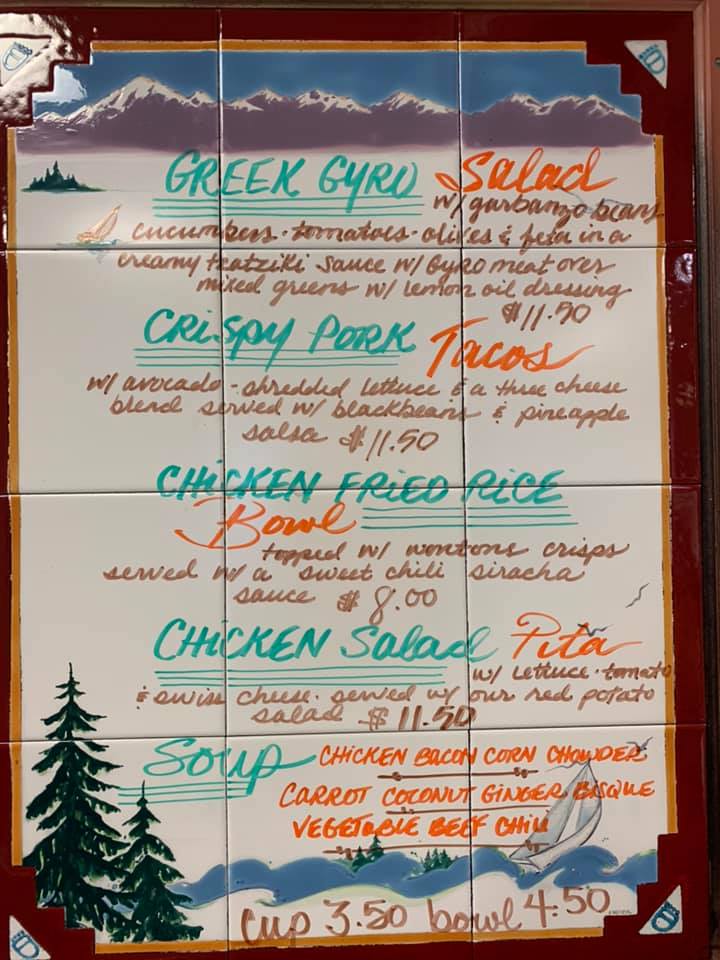 GREEK GYRO Salad
w/ garbanzo beans
cucumbers · tomatoes · olives & feta in a
creamy tzatziki sauce w/ Gyro meat over
mixed greens w/ lemon oil dressing
$11.50
CRISPY PORK Tacos
w/ avocado - shredded lettuce & a three cheese
blend served w/ blackbeans & pineapple
salsa $11.50
CHICKEN FRIED RICE
Bowl
topped w/ wontons crisps
served w/ a sweet chili siracha
sauce $8.00
CHICKEN Salad Pita
w/ lettuce · tomato
& swiss cheese. served w/ our red potato
salad $11.50
Soup CHICKEN BACON CORN CHOWDER
CARROT COCONUT GINGER BISQUE
VEGETABLE BEEF CHILI
cup 3.50 bowl 4.50